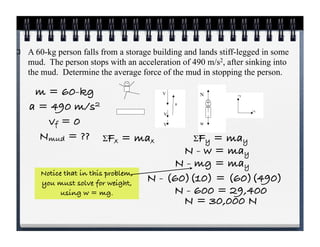 A 60-kg person falls from a storage building and lands stiff-legged in some
mud. The person stops with an acceleration of 490 m/s², after sinking into
the mud. Determine the average force of the mud in stopping the person.
m = 60-kg
a = 490 m/s²
vf = 0
Nmud = ??
ΣFx = max
ΣFy = may
N - w = may
N - mg = may
N - (60)(10) = (60)(490)
N - 600 = 29,400
N = 30,000 N
Notice that in this problem,
you must solve for weight,
using w = mg.
N